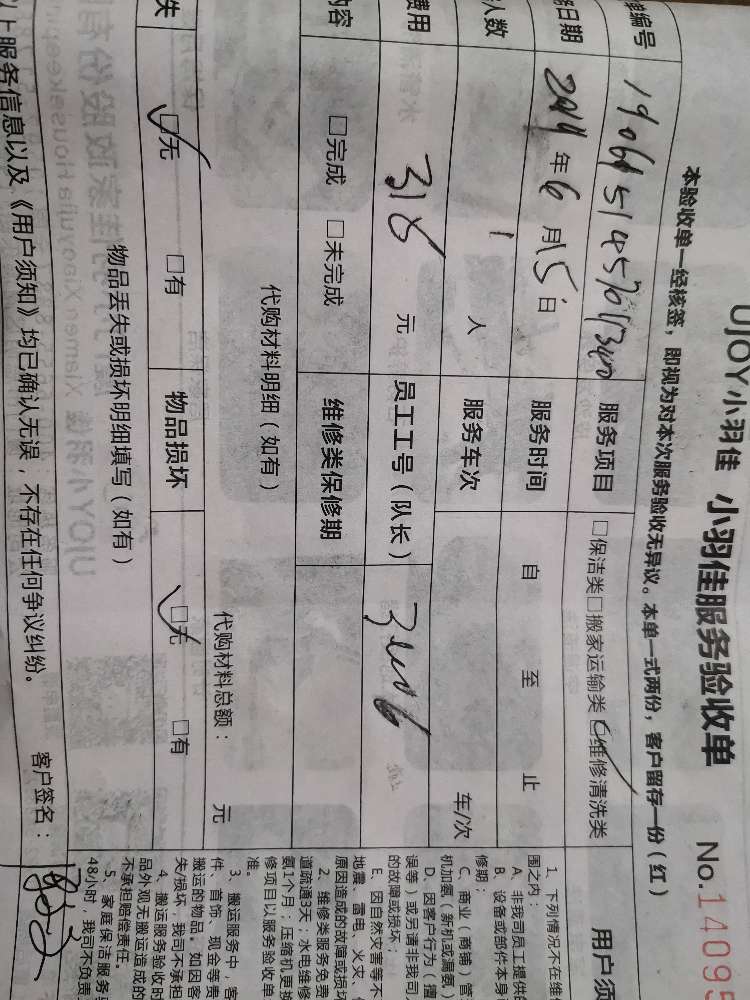 UJOY小羽佳 小羽佳服务验收单 No.14095
本验收单一经核签，即视为对本次服务验收无异议。本单一式两份，客户留存一份（红）
编号 服务项目 □保洁类□搬家运输类□维修清洗类
日期 2019年6月15日 服务时间 自 至 止
人数 1 人 服务车次 车/次
费用 318 元 员工工号（队长）
内容 □完成 □未完成 维修类保修期
代购材料明细（如有） 代购材料总额： 元
失 □无 □有 物品损坏 □无 □有
物品丢失或损坏明细填写（如有）
以上服务信息以及《用户须知》均已确认无误，不存在任何争议纠纷。 客户签名：
用户须
1、下列情况不在维
围之内：
A、非我司员工提供的
B、设备或部件本身
修期；
C、商业（商铺）管
机加氨（新机或漏氨）
D、因客户行为（擅
误等）或另请非我司
的故障或损坏；
E、因自然灾害等不
地震、雷电、火灾、
原因造成的故障或损坏
2、维修类服务免费
道疏通3天；水电维修
氨1个月；压缩机更换
修项目以服务验收单
准。
3、搬运服务中，客
件、首饰、现金等贵
搬运的物品。如因客
失/损坏，我司不承担
4、搬运服务验收时
品外观无搬运造成的
不承担赔偿责任。
5、家庭保洁服务
48小时，我司不负责